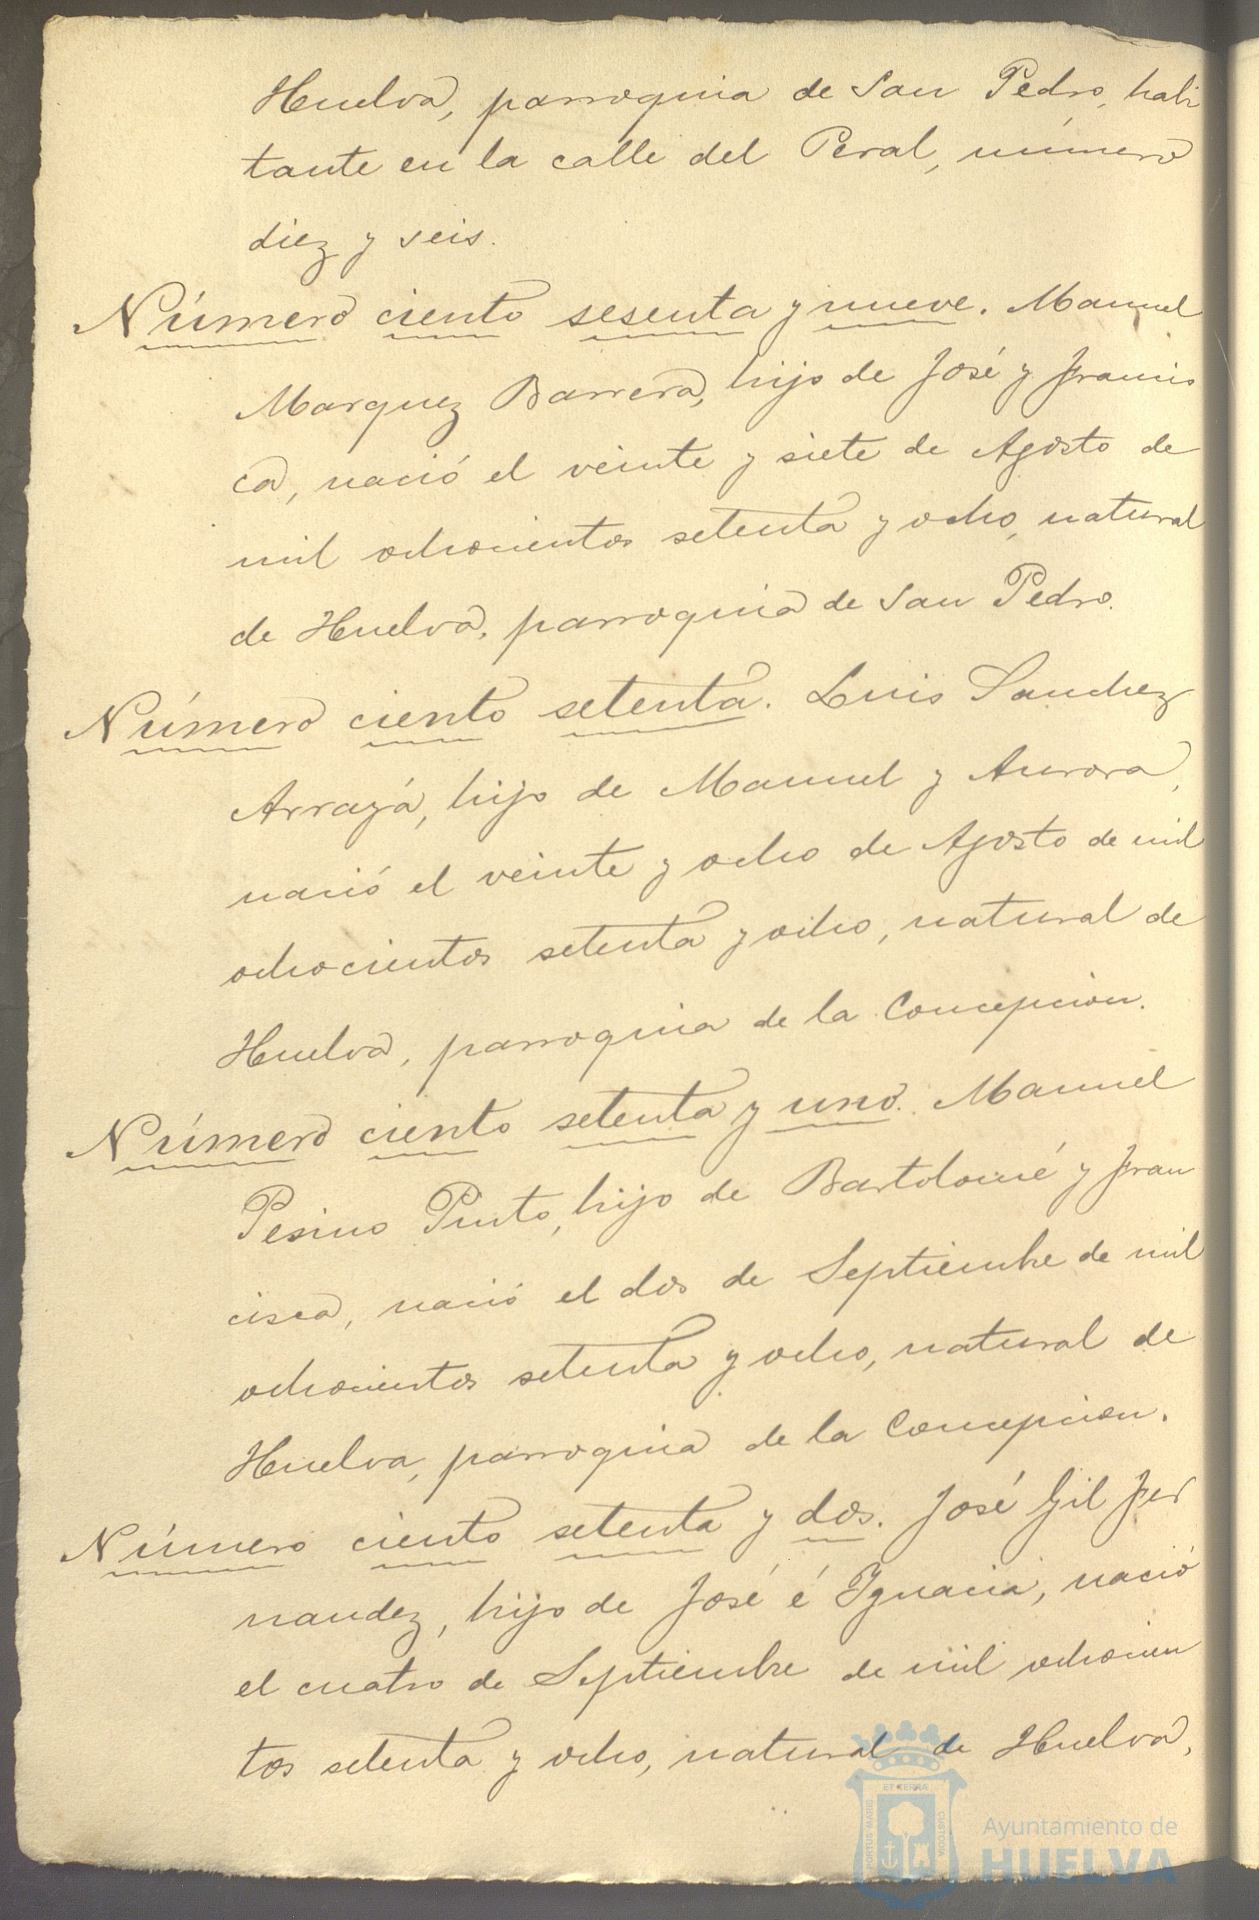 Huelva, parroquia de San Pedro, habi
tante en la calle del Peral, número
diez y seis.
Número ciento sesenta y nueve. Manuel
Marquez Barrera, hijo de José y Francis
ca, nació el veinte y siete de Agosto de
mil ochocientos setenta y ocho, natural
de Huelva, parroquia de San Pedro.
Número ciento setenta. Luis Sanchez
Arrayá, hijo de Manuel y Aurora,
nació el veinte y ocho de Agosto de mil
ochocientos setenta y ocho, natural de
Huelva, parroquia de la Concepcion.
Número ciento setenta y uno. Manuel
Pesino Pinto, hijo de Bartolomé y Fran
cisca, nació el dos de Septiembre de mil
ochocientos setenta y ocho, natural de
Huelva, parroquia de la Concepcion.
Número ciento setenta y dos. José Gil Fer
nandez, hijo de José é Ignacia, nació
el cuatro de Septiembre de mil ochocien
tos setenta y ocho, natural de Huelva,
PORTUS MARIS
ET TERRÆ
CUSTODIA
Ayuntamiento de
HUELVA